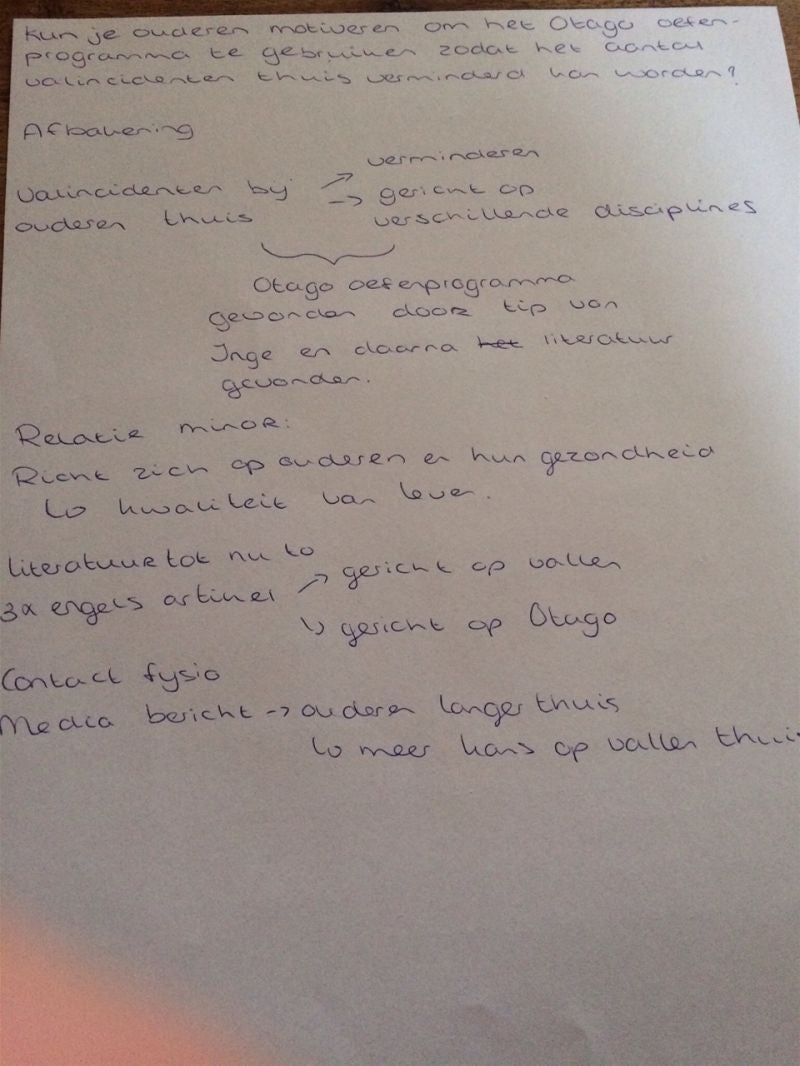 Kun je ouderen motiveren om het Otago oefen-
programma te gebruiken zodat het aantal
valincidenten thuis verminderd kan worden?
Afbakening
valincidenten bij
ouderen thuis
↗ verminderen
→ gericht op
verschillende disciplines
Otago oefenprogramma
gevonden door tip van
Inge en daarna het literatuur
gevonden.
Relatie minor:
Richt zich op ouderen en hun gezondheid
↳ kwaliteit van leven.
literatuur tot nu to
3x engels artikel ↗ gericht op vallen
↳ gericht op Otago
Contact fysio
Media bericht → ouderen langer thuis
↳ meer kans op vallen thuis